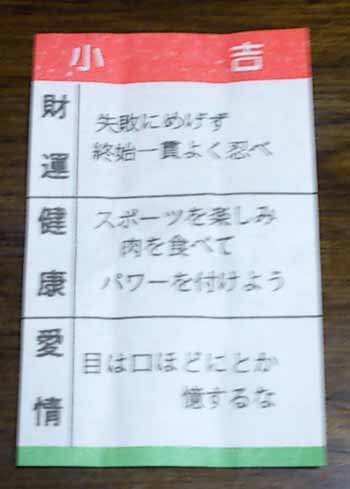 小吉
財運
失敗にめげず
終始一貫よく忍べ
健康
スポーツを楽しみ
肉を食べて
パワーを付けよう
愛情
目は口ほどにとか
憶するな